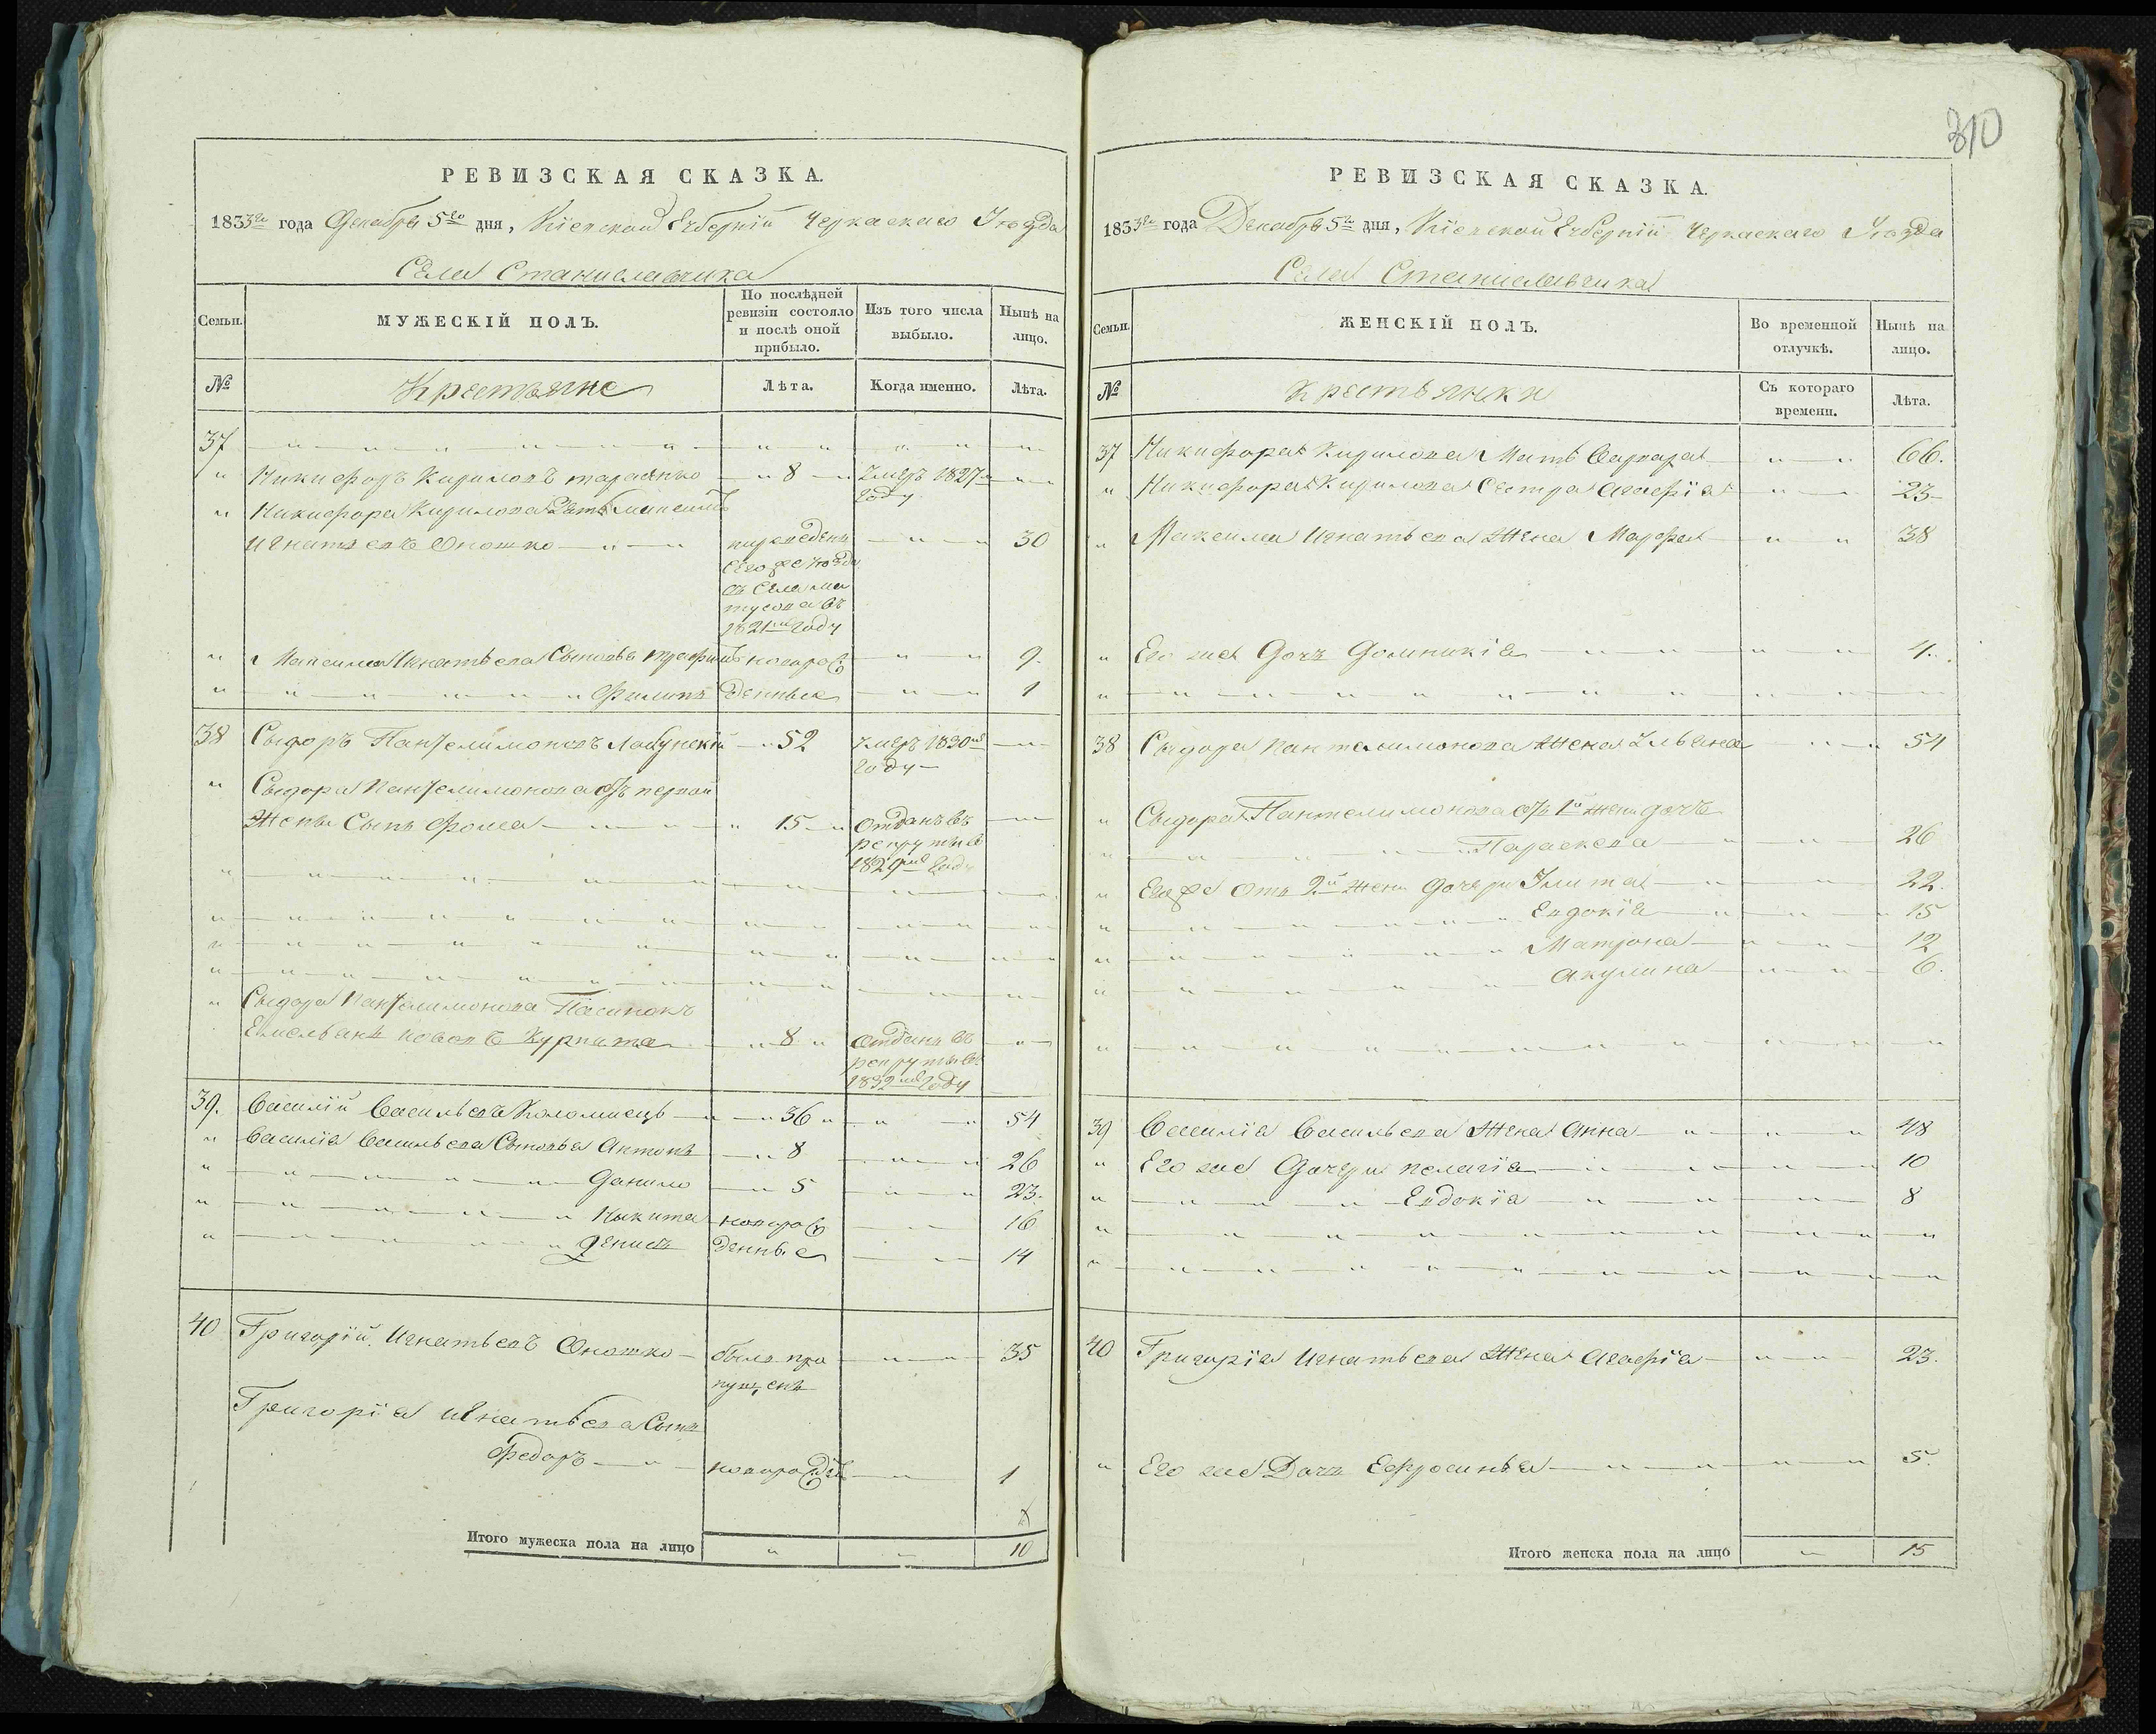 310
РЕВИЗСКАЯ СКАЗКА.
1833го года Декабря 5го дня, Кіевской Губерніи Черкаскаго Уѣзда
Села Станиславчика
Семьи.
МУЖЕСКІЙ ПОЛЪ.
По послѣдней ревизіи состояло и послѣ оной прибыло.
Изъ того числа выбыло.
Нынѣ на лицо.
№
Крестьяне
Лѣта.
Когда именно.
Лѣта.
37
Никифоръ Кириловъ 8 умеръ 1827 году
Никифора Кирилова зять Максимъ
Игнатьевъ Оношко переведенъ 30
сего же уѣзда
съ села Ма
тусова въ
1821м году
Максима Игнатьева Сыновья Трофимъ новорож 9.
Филипъ денные 1
38 Сыдоръ Пантелимоновъ Лабунскій 52 умеръ 1830м году
Сыдора Пантелимонова отъ первой
Жены Сынъ Фома 15 отданъ въ
рекруты в
1829м году
Сыдора Пантелимонова Пасинокъ
Емельянъ 8 отданъ въ
рекруты въ
1832м году
39. Василій Васильевъ Коломиецъ 36 54
Василія Васильева Сыновья Антонъ 8 26
Данило 5 23.
Никита новорож 16
Денисъ денные 14
40 Григорій Игнатьевъ Оношко былъ про 35
пущенъ
Григорія Игнатьева Сынъ
Федоръ новорожден 1
Итого мужеска пола на лицо 10
РЕВИЗСКАЯ СКАЗКА.
1833го года Декабря 5го дня, Кіевской Губерніи Черкаскаго Уѣзда
Села Станиславчика
Семьи.
ЖЕНСКІЙ ПОЛЪ.
Во временной отлучкѣ.
Нынѣ на лицо.
№
Крестьянки
Съ котораго времени.
Лѣта.
37 Никифора Кирилова Мать Варвара 66.
Никифора Кирилова Сестра Агафія 23
Максима Игнатьева Жена Марфа 38
Его же Дочь Доминикія 4.
38 Сыдора Пантелимонова Жена Ульяна 54
Сыдора Пантелимонова отъ 1й жены дочь
Параскева 26
Его же отъ 2й жены дочери Улита 22.
Евдокія 15
Матрона 12
Акулина 6.
39 Василія Васильева Жена Анна 48
Его же Дочери Пелагія 10
Евдокія 8
40 Григорія Игнатьева Жена Агафія 23.
Его же Дочь Ефросинья 5.
Итого женска пола на лицо 15